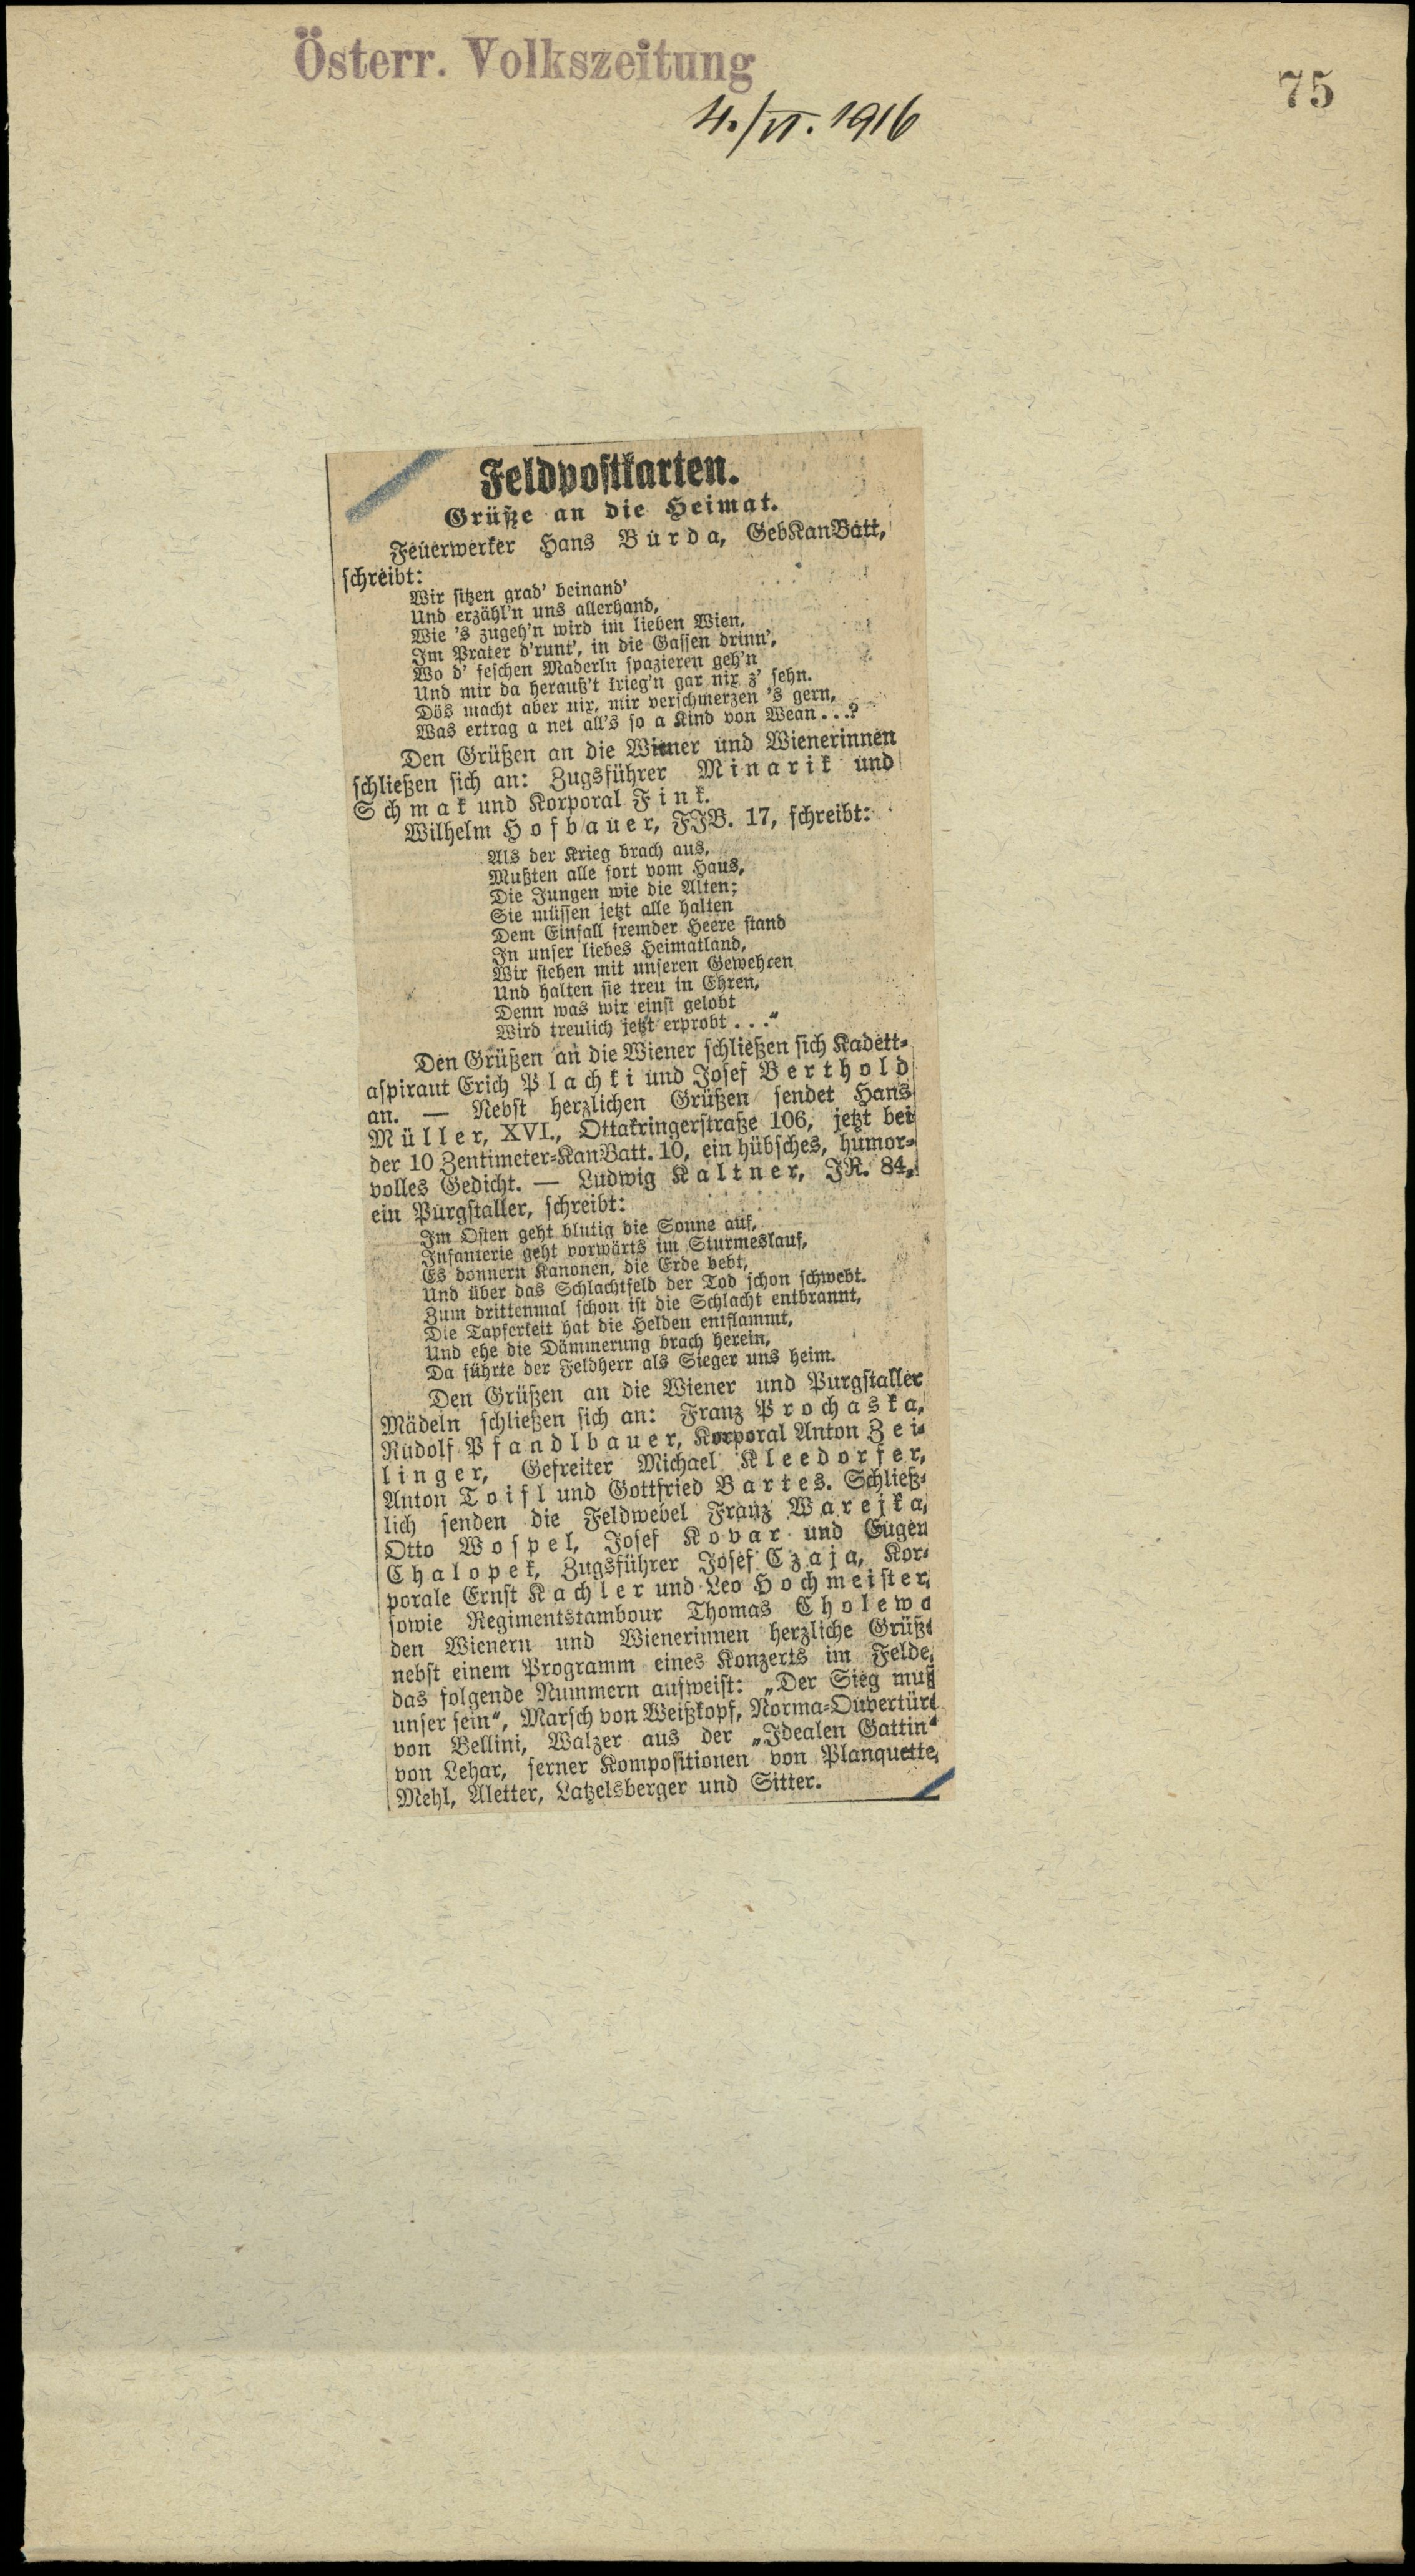 Österr. Volkszeitung
75
4./VI. 1916
Feldpostkarten.
Grüße an die Heimat.
Feuerwerker Hans Burda, GebKanBatt,
schreibt:
Wir sitzen grad' beinand'
Und erzähl'n uns allerhand,
Wie 's zugeh'n wird im lieben Wien,
Im Prater d'runt', in die Gassen drinn',
Wo d' feschen Maderln spazieren geh'n
Und mir da herauß't krieg'n gar nix z' sehn.
Dös macht aber nix, mir verschmerzen 's gern,
Was ertrag a net all's so a Kind von Wean...?
Den Grüßen an die Wiener und Wienerinnen
schließen sich an: Zugsführer Minarik und
Schmak und Korporal Fink.
Wilhelm Hofbauer, FJB. 17, schreibt:
Als der Krieg brach aus,
Mußten alle fort vom Haus,
Die Jungen wie die Alten;
Sie müssen jetzt alle halten
Dem Einfall fremder Heere stand
In unser liebes Heimatland,
Wir stehen mit unseren Gewehren
Und halten sie treu in Ehren,
Denn was wir einst gelobt
Wird treulich jetzt erprobt..."
Den Grüßen an die Wiener schließen sich Kadett-
aspirant Erich Plachki und Josef Berthold
an. — Nebst herzlichen Grüßen sendet Hans
Müller, XVI., Ottakringerstraße 106, jetzt bei
der 10 Zentimeter-KanBatt. 10, ein hübsches, humor-
volles Gedicht. — Ludwig Kaltner, JR. 84,
ein Purgstaller, schreibt:
Im Osten geht blutig die Sonne auf,
Infanterie geht vorwärts im Sturmeslauf,
Es donnern Kanonen, die Erde bebt,
Und über das Schlachtfeld der Tod schon schwebt.
Zum drittenmal schon ist die Schlacht entbrannt,
Die Tapferkeit hat die Helden entflammt,
Und ehe die Dämmerung brach herein,
Da führte der Feldherr als Sieger uns heim.
Den Grüßen an die Wiener und Purgstaller
Mädeln schließen sich an: Franz Prochaska,
Rudolf Pfandlbauer, Korporal Anton Zei-
linger, Gefreiter Michael Kleedorfer,
Anton Toifl und Gottfried Bartes. Schließ-
lich senden die Feldwebel Franz Warejka,
Otto Wospel, Josef Kovar und Eugen
Chalopek, Zugsführer Josef Czaja, Kor-
porale Ernst Kachler und Leo Hochmeister,
sowie Regimentstambour Thomas Cholewa
den Wienern und Wienerinnen herzliche Grüße
nebst einem Programm eines Konzerts im Felde,
das folgende Nummern aufweist: „Der Sieg muß
unser sein", Marsch von Weißkopf, Norma-Ouvertüre
von Bellini, Walzer aus der „Idealen Gattin"
von Lehar, ferner Kompositionen von Planquette,
Mehl, Aletter, Latzelsberger und Sitter.